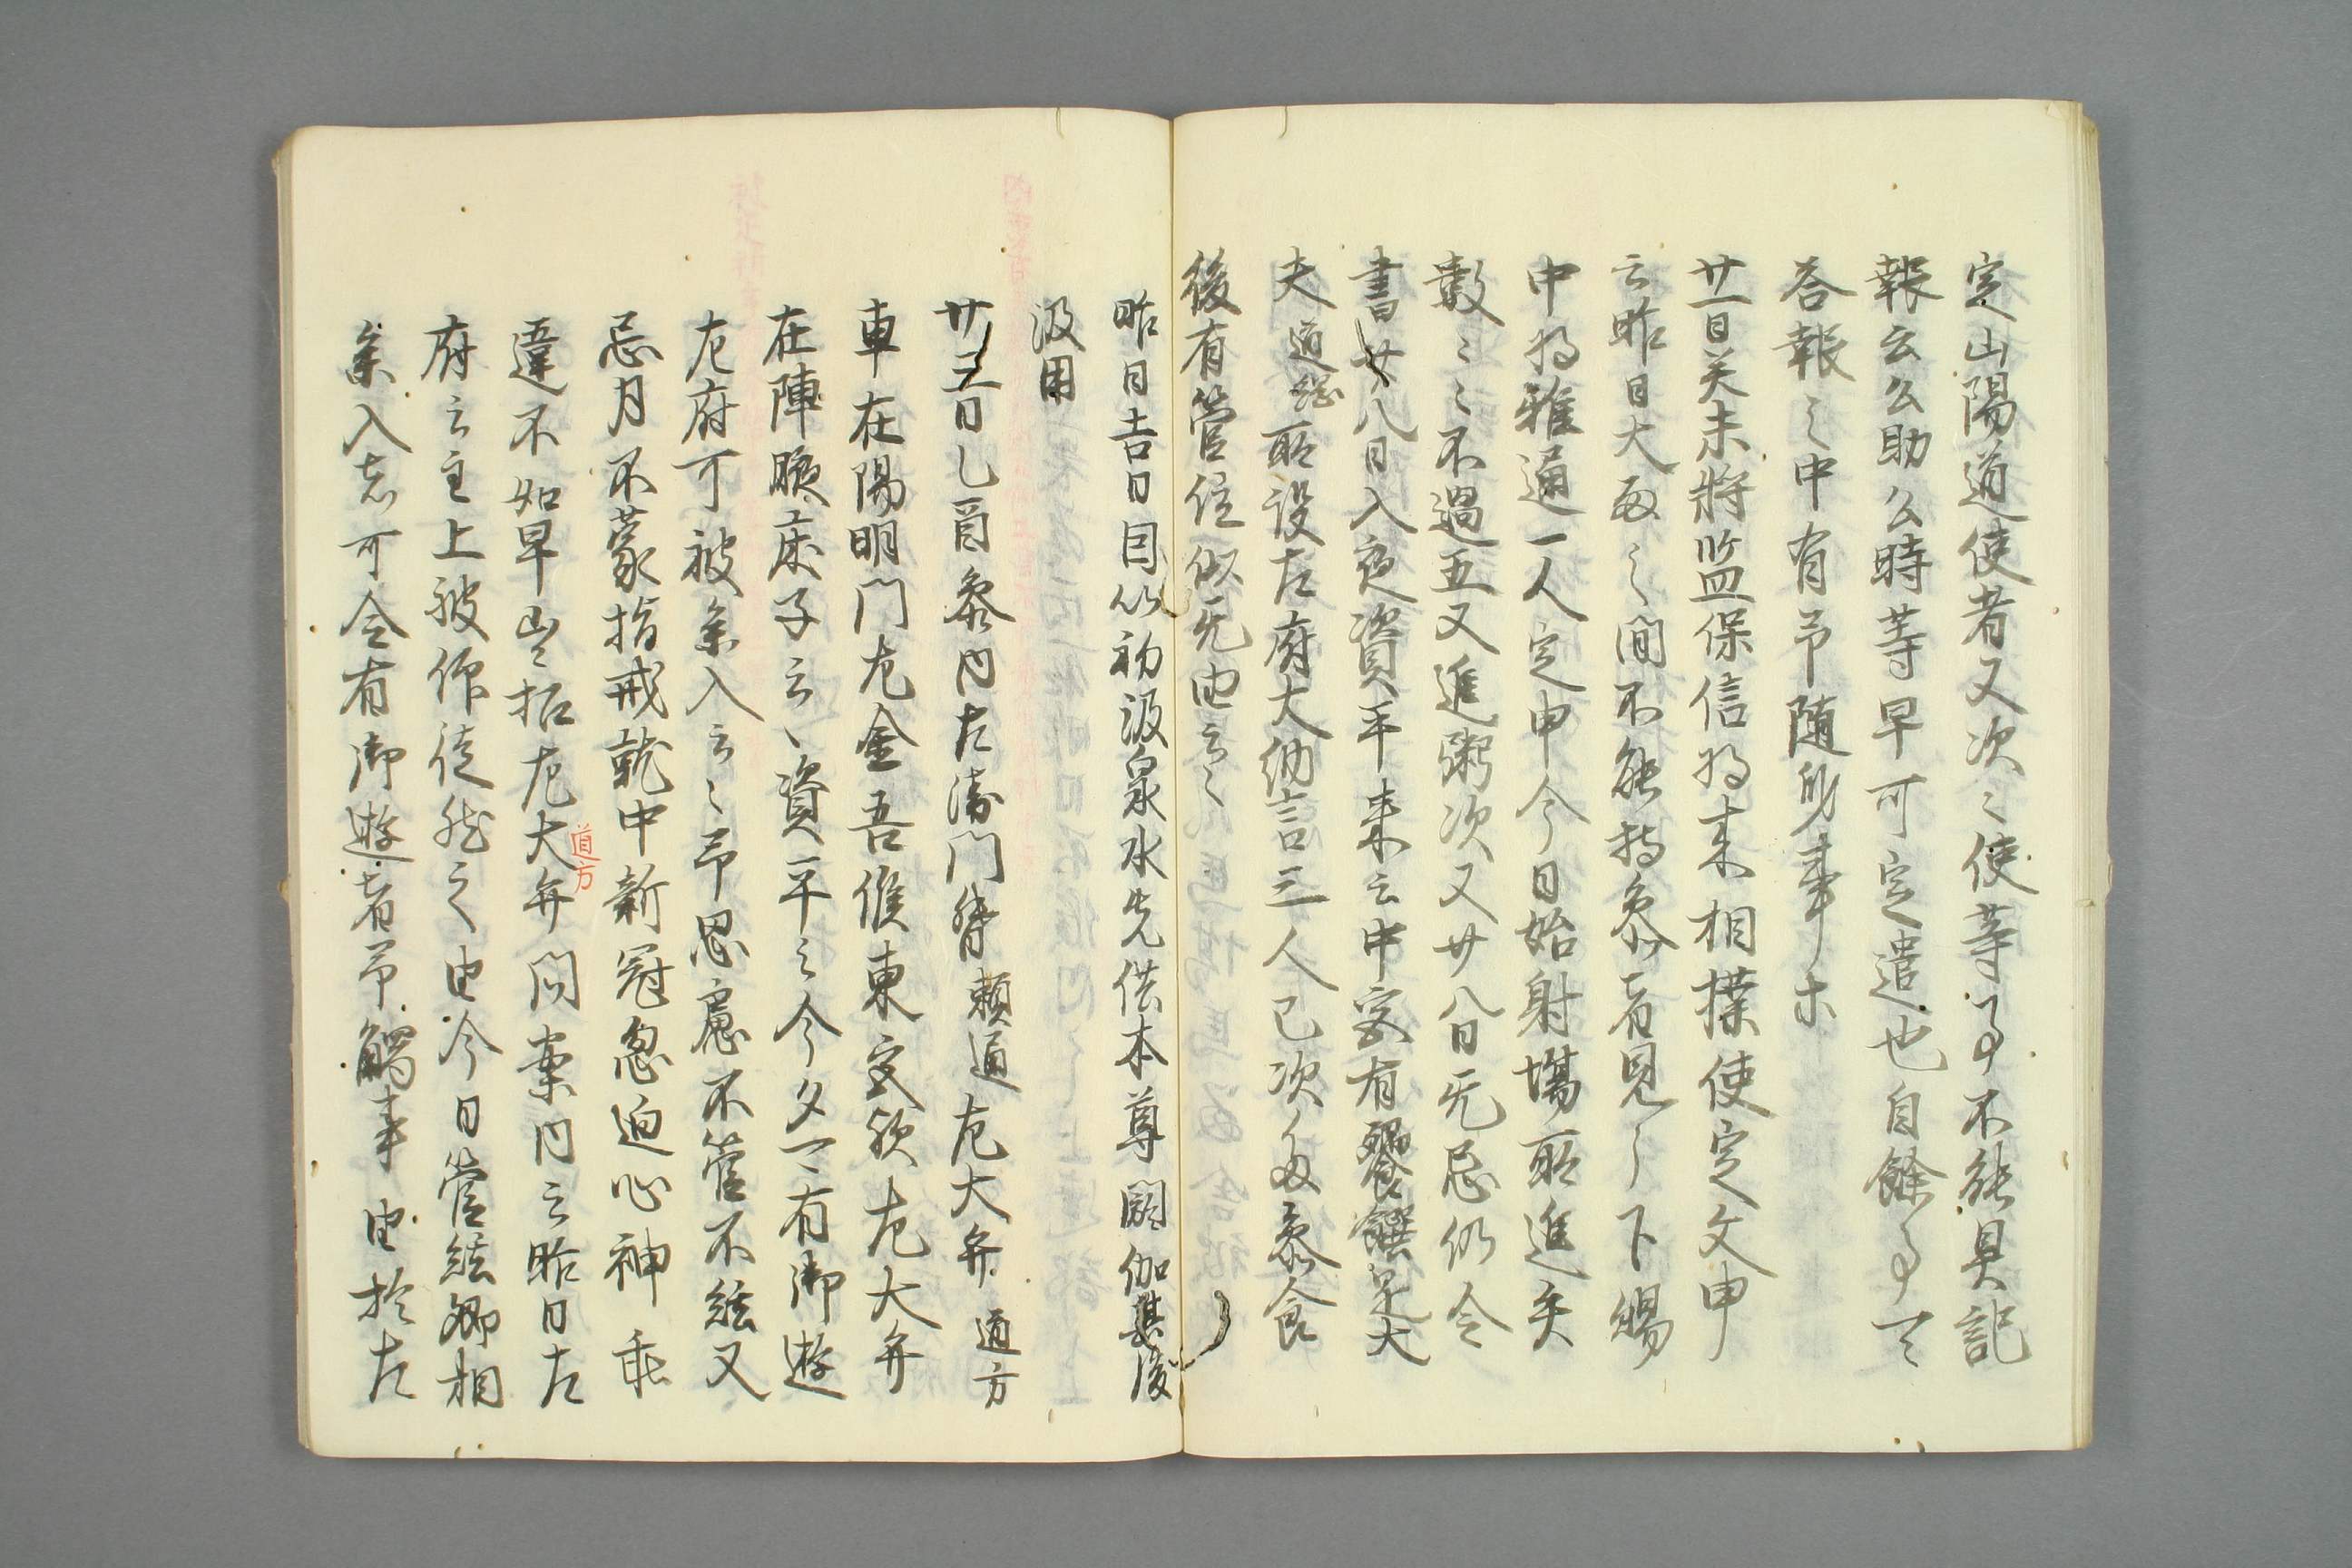 定山陽道使者又次〻使等事不能具記
報云公助公時等早可定遣也自餘事一〻
答報之中有予随身事ホ
廿一日癸未将監保信持来相撲使定文申
云昨日大殿之間不能持参者見了下賜
中将雅通一人定申今日始射場所進矢
數〻〻不過五又進粥次又廿八日无忌仍令
書廿八日入夜資平来云中宮有饗饌是大
夫道綱所設左府大納言三人已次〻多参食
後有管絃似无由云〻
昨日吉日因以初汲泉水先供本尊閼伽其後
汲用
廿三日乙酉参内左衛門督頼通左大弁道方
車在陽明門右金吾候東宮欤左大弁
在陣腋床子云、資平云今夕一〻有御遊
左府可被参入云〻予思慮不管不絃又
忌月不蒙指戒就中新冠忽迫心神乖
違不如早出〻招左大弁問案内云昨日左
道方
府云主上被仰徒然之由今日管絃卿相
参入者可令有御遊者予觸事由於左